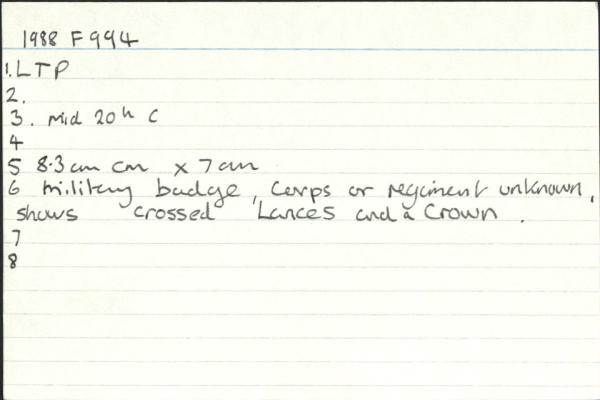 1988 F994
1. LTP
2.
3. Mid 20th C
4
5 8.3cm cm x 7cm
6 military badge, corps or regiment unknown,
shows crossed Lances and a Crown.
7
8